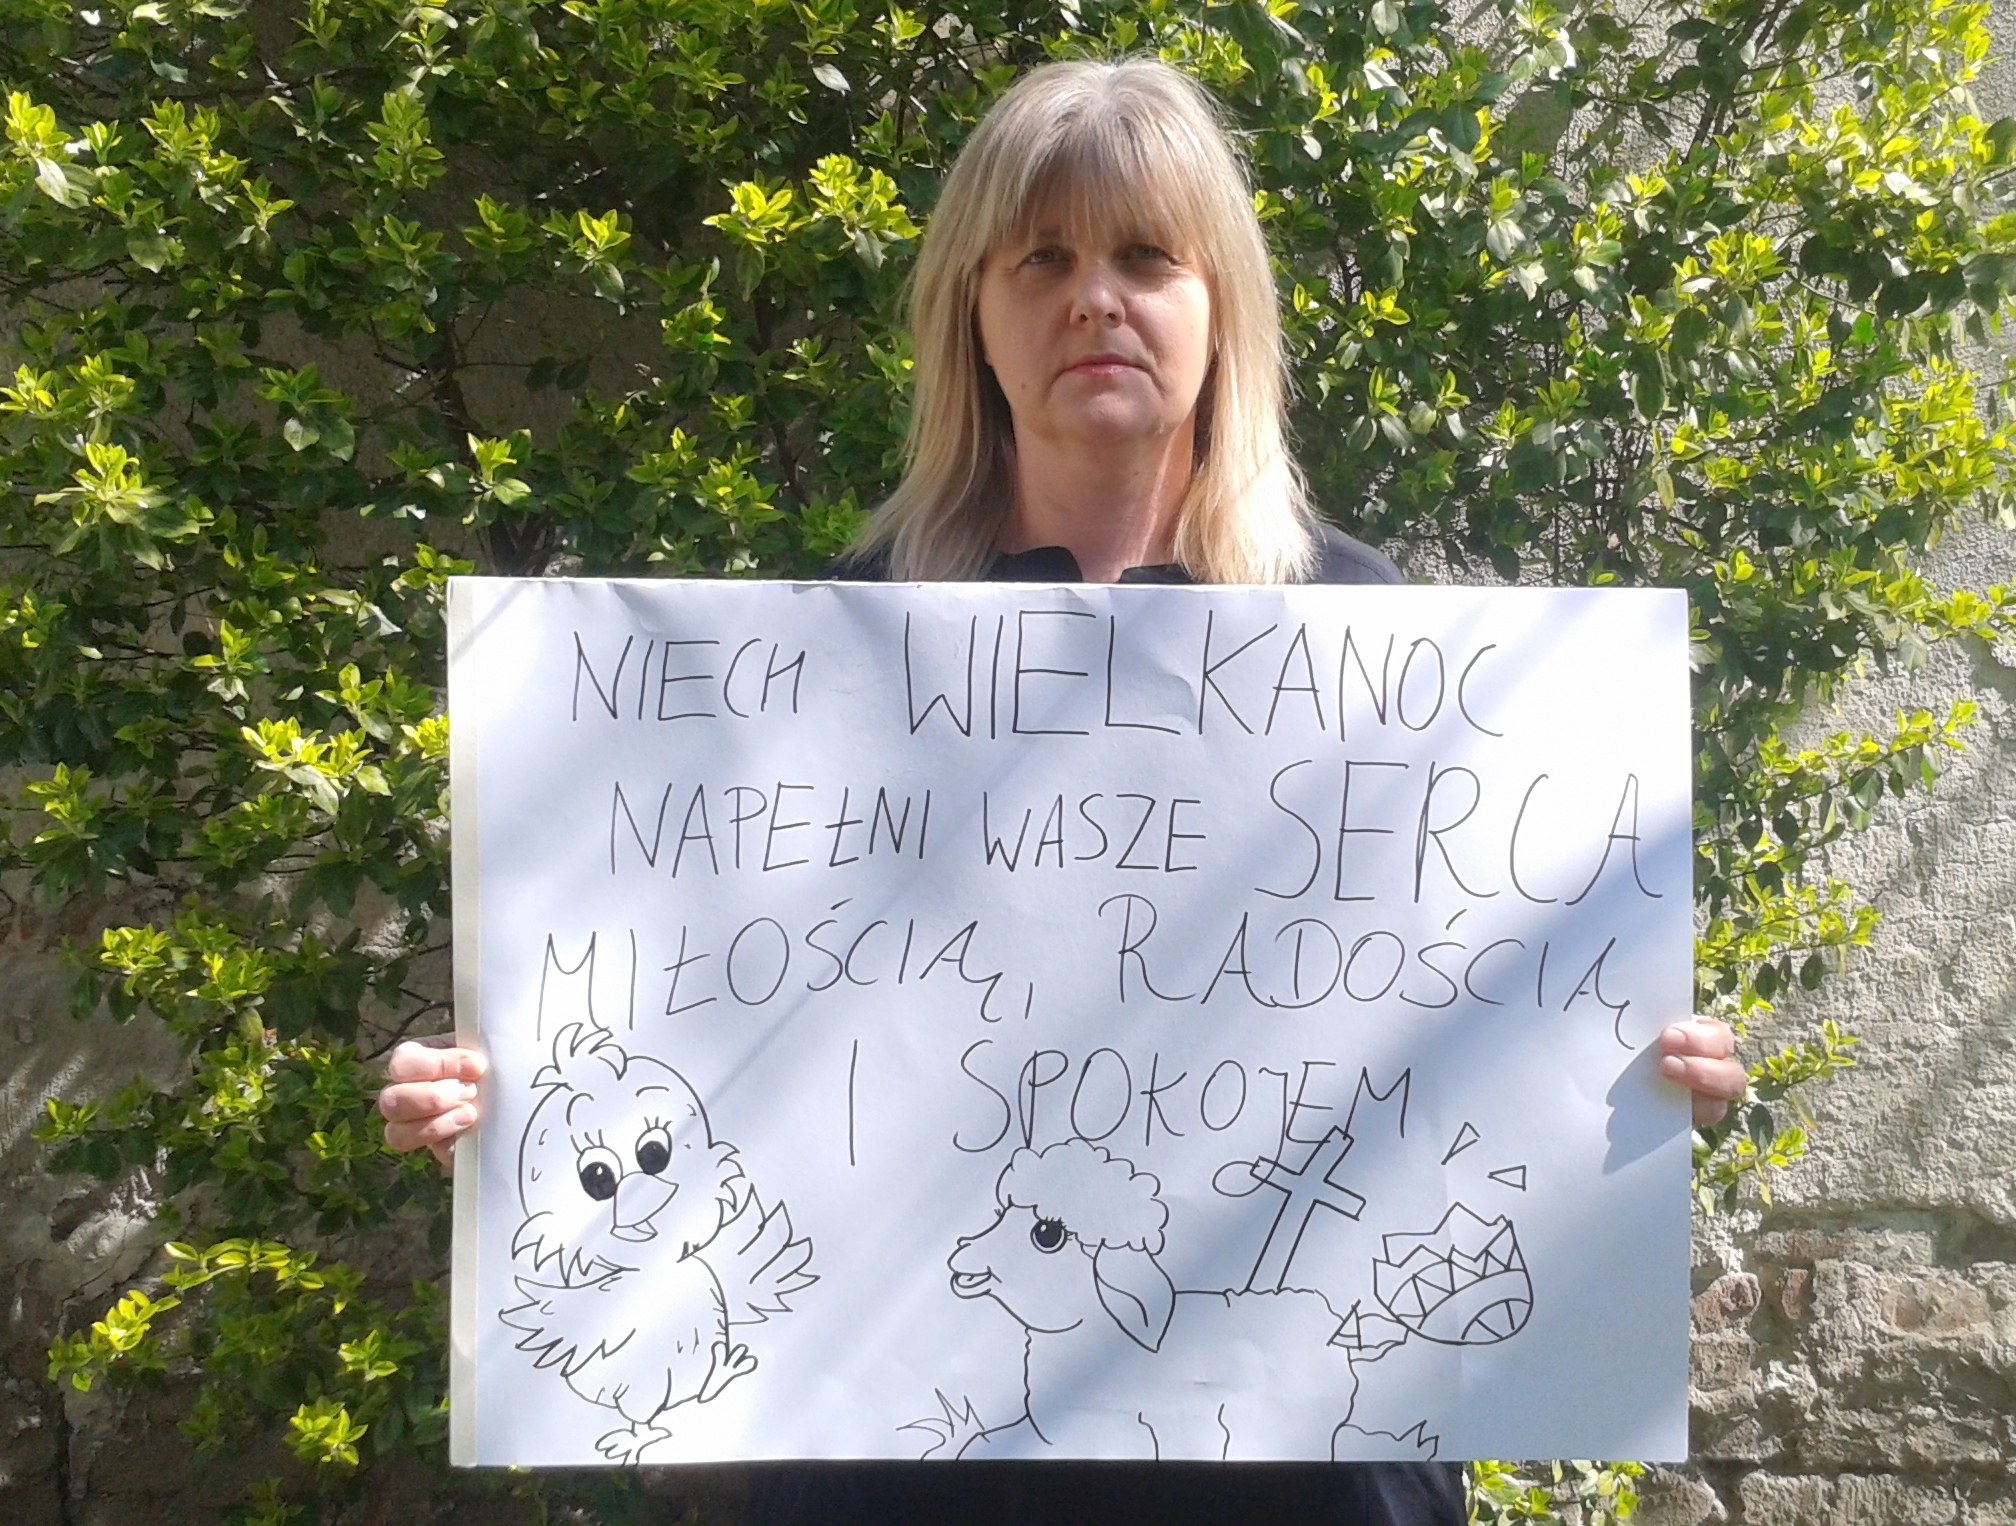 NIECH WIELKANOC
NAPEŁNI WASZE SERCA
MIŁOŚCIĄ, RADOŚCIĄ
I SPOKOJEM